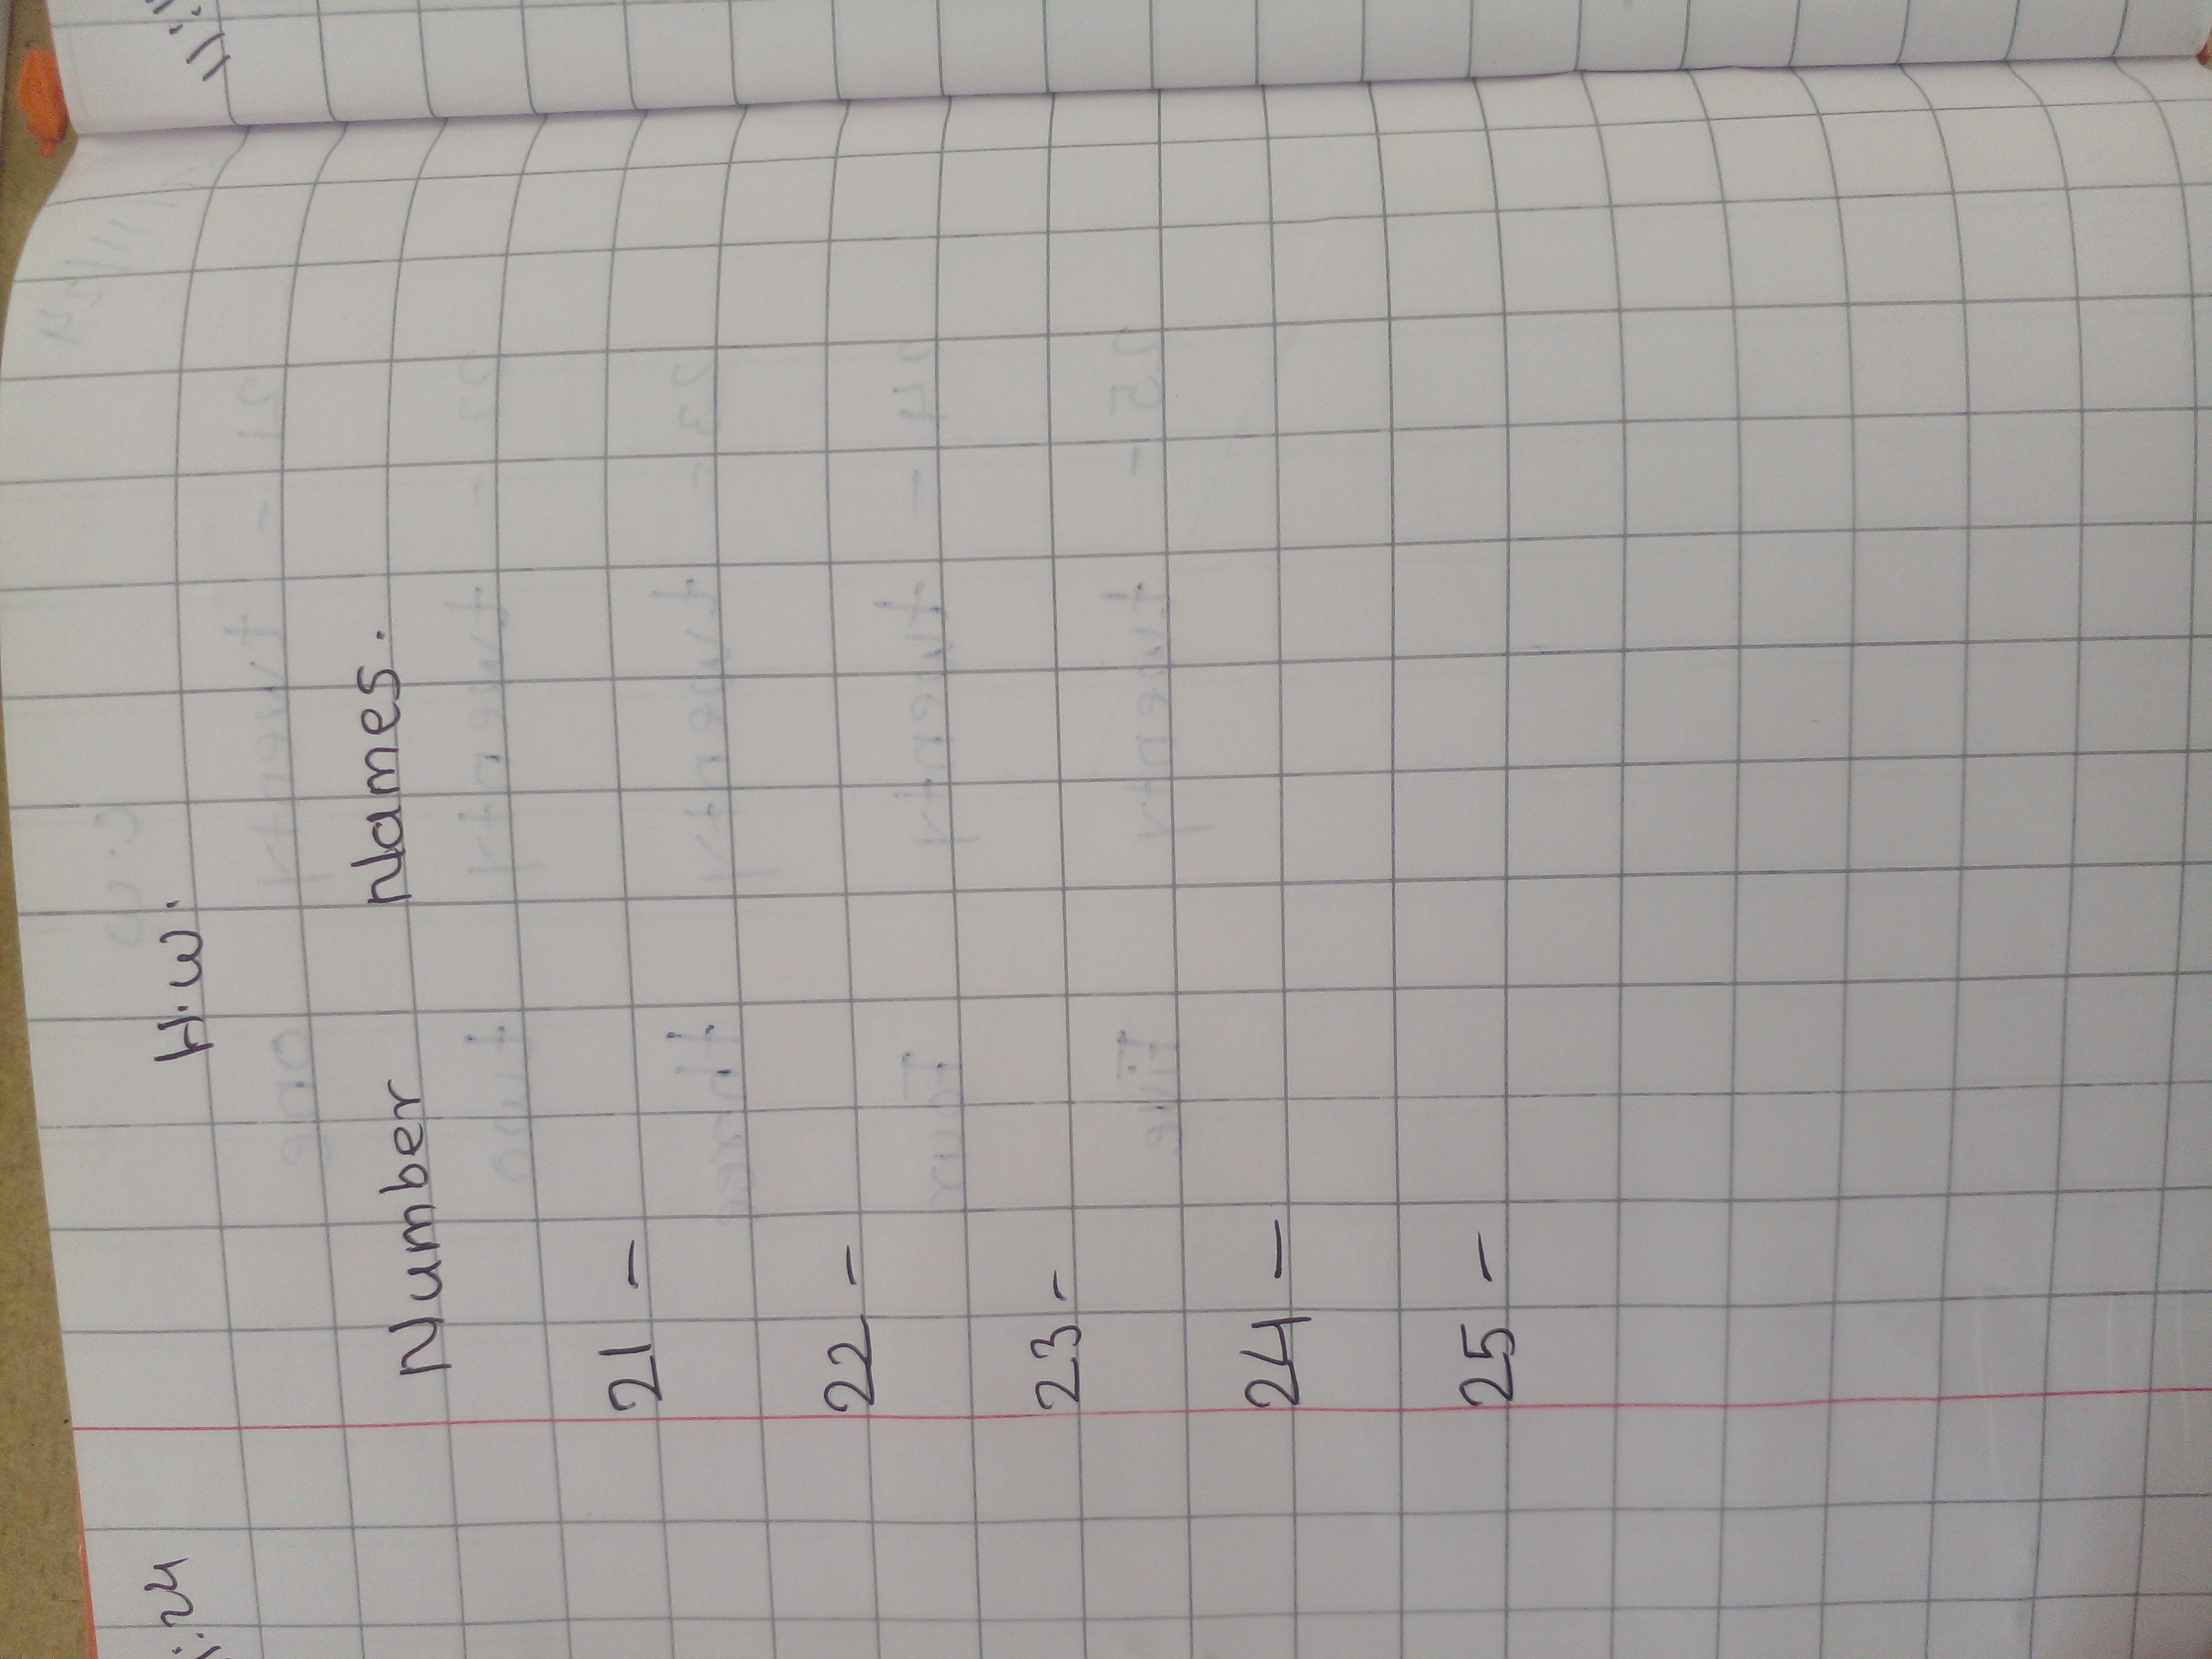 H.W.
Number Names.
21 -
22 -
23 -
24 -
25 -